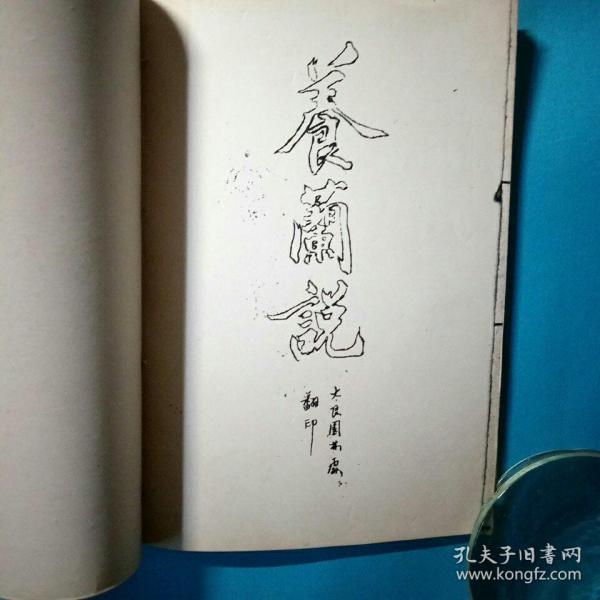 養蘭說
大良園林處
翻印
孔夫子旧書网
www.kongfz.com